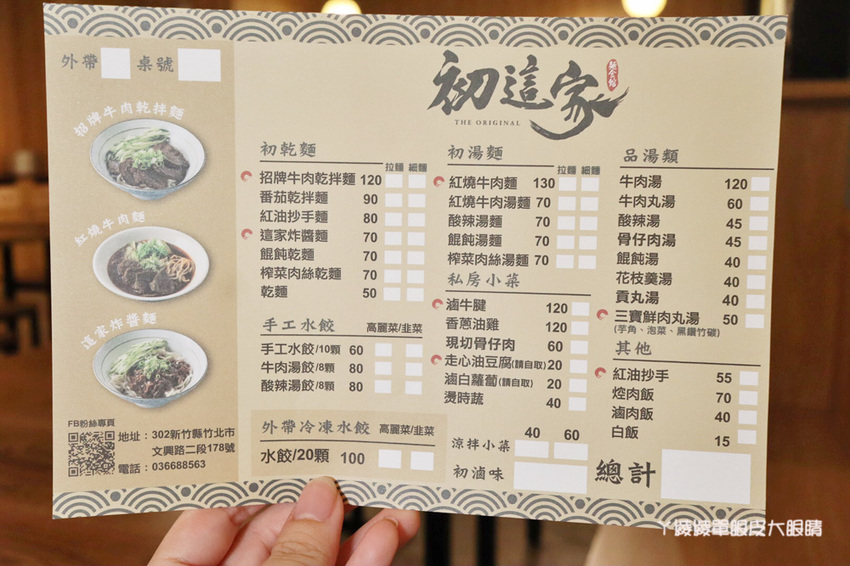 外帶 桌號
招牌牛肉乾拌麵
紅燒牛肉麵
這家炸醬麵
FB粉絲專頁
地址：302新竹縣竹北市
文興路二段178號
電話：036688563
初這家
THE ORIGINAL
初乾麵
拉麵 細麵
招牌牛肉乾拌麵 120
番茄乾拌麵 90
紅油抄手麵 80
這家炸醬麵 70
餛飩乾麵 70
榨菜肉絲乾麵 70
乾麵 50
手工水餃 高麗菜/韭菜
手工水餃/10顆 60
牛肉湯餃/8顆 80
酸辣湯餃/8顆 80
外帶冷凍水餃 高麗菜/韭菜
水餃/20顆 100
初湯麵
拉麵 細麵
紅燒牛肉麵 130
紅燒牛肉湯麵 70
酸辣湯麵 70
餛飩湯麵 70
榨菜肉絲湯麵 70
私房小菜
滷牛腱 120
香蔥油雞 120
現切骨仔肉 60
走心油豆腐(請自取) 20
滷白蘿蔔(請自取) 20
燙時蔬 40
40 60
涼拌小菜
初滷味
品湯類
牛肉湯 120
牛肉丸湯 60
酸辣湯 45
骨仔肉湯 45
餛飩湯 40
花枝羹湯 40
貢丸湯 40
三寶鮮肉丸湯 50
(芋角、泡菜、黑鑽竹碳)
其他
紅油抄手 55
焢肉飯 70
滷肉飯 40
白飯 15
總計
ㄚ綾綾單眼皮大眼睛